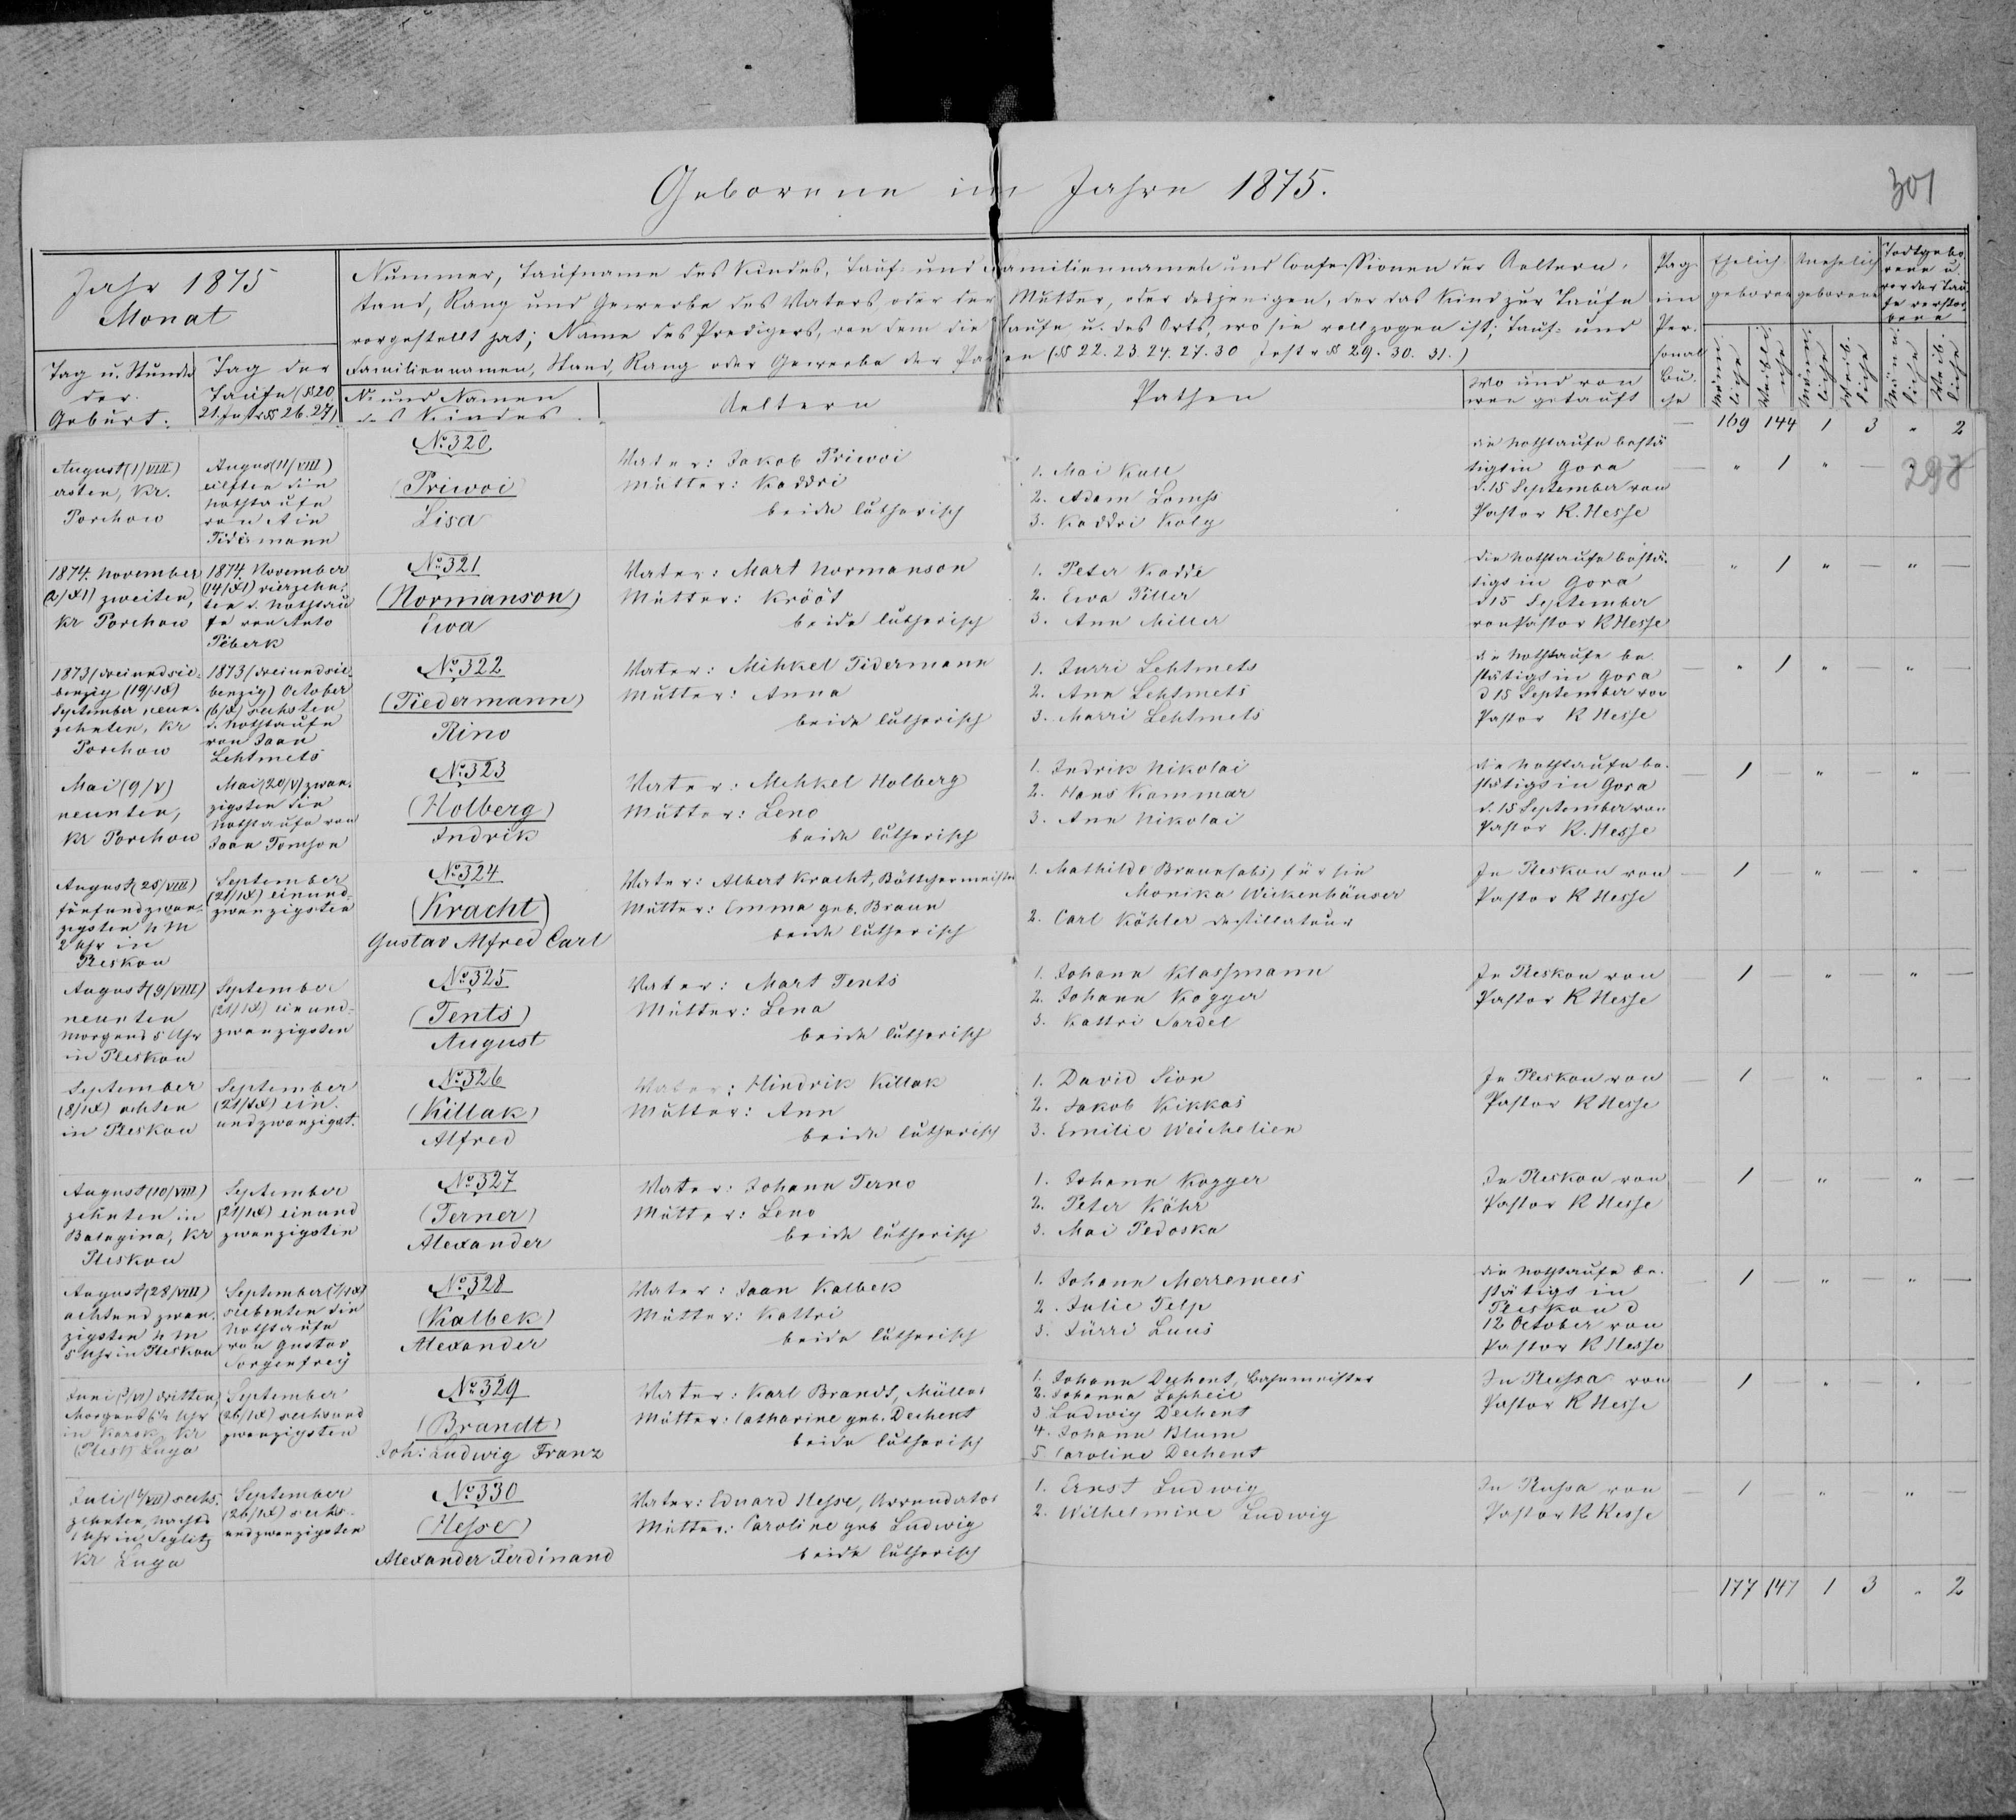 Geborene im Jahre 1875.
301
Jahr 1875
Monat
Tag u. Stunde
der
Geburt.
Tag der
Taufe (§ 20
21. Instr §§ 26. 27)
Nummer, Taufname des Kindes, Tauf- und Familiennamen und Confessionen der Aeltern,
Stand, Rang und Gewerbe des Vaters oder der Mutter, oder desjenigen, der das Kind zur Taufe
vorgestellt hat; Name des Predigers, von dem die Taufe u. des Orts, wo sie vollzogen ist; Tauf- und
Familiennamen, Stand, Rang oder Gewerbe der Pathen (§§ 22. 23. 24. 27. 30 Instr §§ 29. 30. 31.)
No und Namen
des Kindes.
Aeltern
Pathen
Wo und von
wem getauft
Pag.
im
Per-
sonal
Bu-
che
Ehelich
geboren
Unehelich
geborene
Todtgebo
rene u.
vor der Tau
fe verstor-
bene
Männ-
liche
Weibli
che
Männ-
liche
Weib-
liche
Männ-
liche
Weib-
liche
— 169 144 1 3 " 2
August (1/VIII)
ersten, Kr.
Porchow
August (11/VIII)
eilften die
Nothtaufe
von Ain
Tidermann
No 320
(Priwoi)
Lisa
Vater: Jakob Priwoi
Mutter: Kaddri
beide lutherisch
1. Mai Kull
2. Adam Lomps
3. Kaddri Kolg
die Nothtaufe bestä
tigt in Gora
d. 15 September von
Pastor K. Hesse
— " 1 " — "
298
1874. November
(2/XI) zweiten,
Kr Porchow
1874. November
(14/XI) vierzehn-
ten d. Nothtau
fe von Anto
Peberk
No 321
(Normanson)
Ewa
Vater: Mart Normanson
Mutter: Krööt
beide lutherisch
1. Peter Kadde
2. Ewa Piller
3. Ann Miller
die Nothtaufe bestä-
tigt in Gora
d 15 September
von Pastor K Hesse
— " 1 " — " —
1873 (dreiundsie-
benzig (19/IX)
September neun-
zehnten, Kr
Porchow
1873 (dreiundsie-
benzig) October
(6/X) sechsten
d. Nothtaufe
von Jaan
Lehtmets
No 322
(Tiedermann)
Rino
Vater: Mihkel Tidermann
Mutter: Anna
beide lutherisch
1. Jurri Lehtmets
2. Ann Lehtmets
3. Marri Lehtmets
die Nothtaufe be
stätigt in Gora
d 15 September von
Pastor K Hesse
— " 1 " — " —
Mai (9/V)
neunten,
Kr Porchow
Mai (20/V) zwan-
zigsten die
Nothtaufe von
Jaan Tomson
No 323
(Holberg)
Indrik
Vater: Mehkel Holberg
Mutter: Leno
beide lutherisch
1. Indrik Nikolai
2. Hans Kammar
3. Ann Nikolai
die Nothtaufe be-
stätigt in Gora
d. 15 September von
Pastor K. Hesse
— 1 — " — " —
August (25/VIII)
fünfundzwan-
zigsten N M
2 Uhr in
Pleskau
September
(21/IX) einund-
zwanzigsten
No 324
(Kracht)
Gustav Alfred Carl
Vater: Albert Kracht, Böttchermeister
Mutter: Emma geb. Braun
beide lutherisch
1. Mathilde Braun (abs) für sie
Monika Wickenhäuser
2. Carl Köhler Destillateur
In Pleskau von
Pastor K Hesse
— 1 " — " —
August (9/VIII)
neunten
Morgens 5 Uhr
in Pleskau
September
(21/IX) einund-
zwanzigsten
No 325
(Tents)
August
Vater: Mart Tents
Mutter: Lena
beide lutherisch
1. Johann Klassmann
2. Johann Kogger
3. Kattri Sardel
In Pleskau von
Pastor K Hesse
— 1 — " " —
September
(8/IX) achten
in Pleskau
September
(21/IX) ein-
undzwanzigst.
No 326
(Killak)
Alfred
Vater: Hindrik Killak
Mutter: Ann
beide lutherisch
1. David Sion
2. Jakob Kikkas
3. Emilie Weichelien
In Pleskau von
Pastor K Hesse
— 1 — " — " —
August (10/VIII)
zehnten in
Balagina, Kr
Pleskau
September
(21/IX) einund
zwanzigsten
No 327
(Terner)
Alexander
Vater: Johann Terno
Mutter: Leno
beide lutherisch
1. Johann Kogger
2. Peter Kähr
3. Mai Pedoska
In Pleskau von
Pastor K Hesse
— 1 — " — " —
August (28/VIII)
achtund zwan-
zigsten N M
5 Uhr in Pleskau
September (7/IX)
siebenten die
Nothtaufe
von Gustav
Sorgenfrey
No 328
(Kalbek)
Alexander
Vater: Jaan Kalbek
Mutter: Kattri
beide lutherisch
1. Johann Merremees
2. Julie Telp
3. Jürri Luus
die Nothtaufe be-
stätigt in
Pleskau d
12 October von
Pastor K Hesse
— 1 — " — " —
Juni (3/VI) dritten,
Morgens 6½ Uhr
in Karok, Kr
(Plesk) Luga
September
(26/IX) sechsund
zwanzigsten
No 329
(Brandt)
Joh: Ludwig Franz
Vater: Karl Brandt, Müller
Mutter: Catharine geb. Dechent
beide lutherisch
1. Johann Dechent,
2. Johanna
3 Ludwig Dechent
4. Johann Blum
5 Caroline Dechent
In Russa von
Pastor K Hesse
— 1 — " — " —
Juli (16/VII) sechs-
zehnten, Nachts
1 Uhr in Seglitz
Kr Luga
September
(26/IX) sechs-
undzwanzigsten
No 330
(Hesse)
Alexander Ferdinand
Vater: Eduard Hesse, Arrendator
Mutter: Caroline geb Ludwig
beide lutherisch
1. Ernst Ludwig
2. Wilhelmine Ludwig
In Russa von
Pastor K Hesse
— 1 — " — " —
— 177 147 1 3 " 2